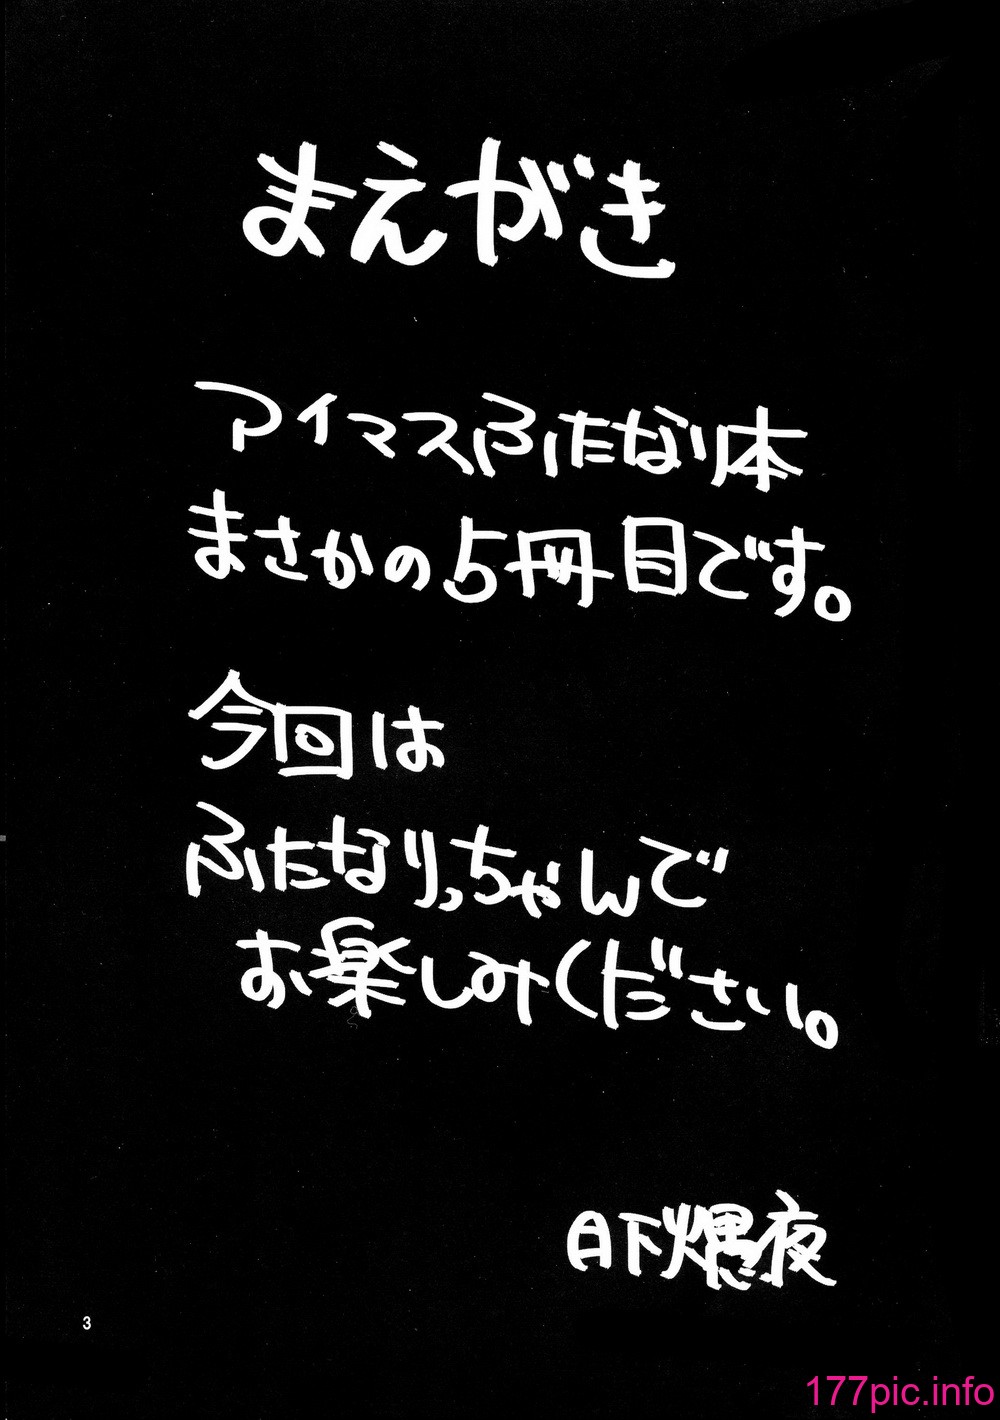 まえがき
アイマスふたなり本
まさかの5冊目です。
今回は
ふたなりっちゃんで
お楽しみください。
日下 夜
3
177pic.info